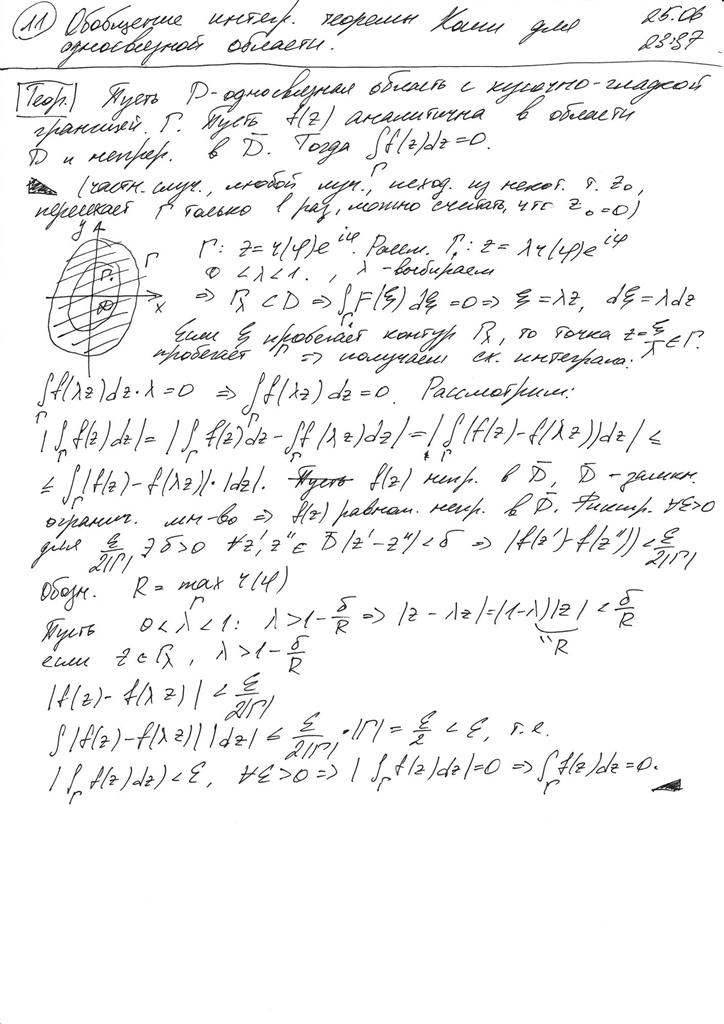 (11) Обобщение интегр. теоремы Коши для 25.06
односвязной области. 23:37
Теор. Пусть D-односвязная область с кусочно-гладкой
границей Γ. Пусть f(z) аналитична в области
D и непрер. в D̅. Тогда ∫_Γ f(z)dz=0.
(частн. случ., любой луч, исход. из некот. т. z₀,
пересекает Γ только 1 раз, можно считать, что z₀=0)
y Γ Γ_λ 0 x
Γ: z=r(φ)e^{iφ}. Рассм. Γ_λ: z=λr(φ)e^{iφ}
0<λ<1., λ-выбираем
=> Γ_λ ⊂ D => ∫_Γ_λ F(ξ)dξ=0 => ξ=λz, dξ=λdz
Если ξ пробегает контур Γ_λ, то точка z=ξ/λ ∈ Γ.
пробегает Γ => получаем сх. интеграла:
∫_Γ f(λz)dz·λ=0 => ∫_Γ f(λz)dz=0. Рассмотрим:
|∫_Γ f(z)dz|=|∫_Γ f(z)dz-∫_Γ f(λz)dz|=|∫_Γ (f(z)-f(λz))dz| ≤
≤ ∫_Γ |f(z)-f(λz)|·|dz|. Пусть f(z) непр. в D̅, D̅-замкн.
огранич. мн-во => f(z) равном. непр. в D̅. Фиксир. ∀ε>0
для ε/2|Γ| ∃δ>0 ∀z',z''∈D̅ |z'-z''|<δ => |f(z')-f(z'')|<ε/2|Γ|
Обозн. R = max_Γ r(φ)
Пусть 0<λ<1: λ>1-δ/R => |z-λz|=(1-λ)|z|<δ/R
если z∈Γ_λ, λ>1-δ/R "R
|f(z)-f(λz)|<ε/2|Γ|
∫|f(z)-f(λz)||dz| ≤ ε/2|Γ|·|Γ|=ε/2<ε, т.е.
|∫_Γ f(z)dz|<ε, ∀ε>0 => |∫_Γ f(z)dz|=0 => ∫_Γ f(z)dz=0.